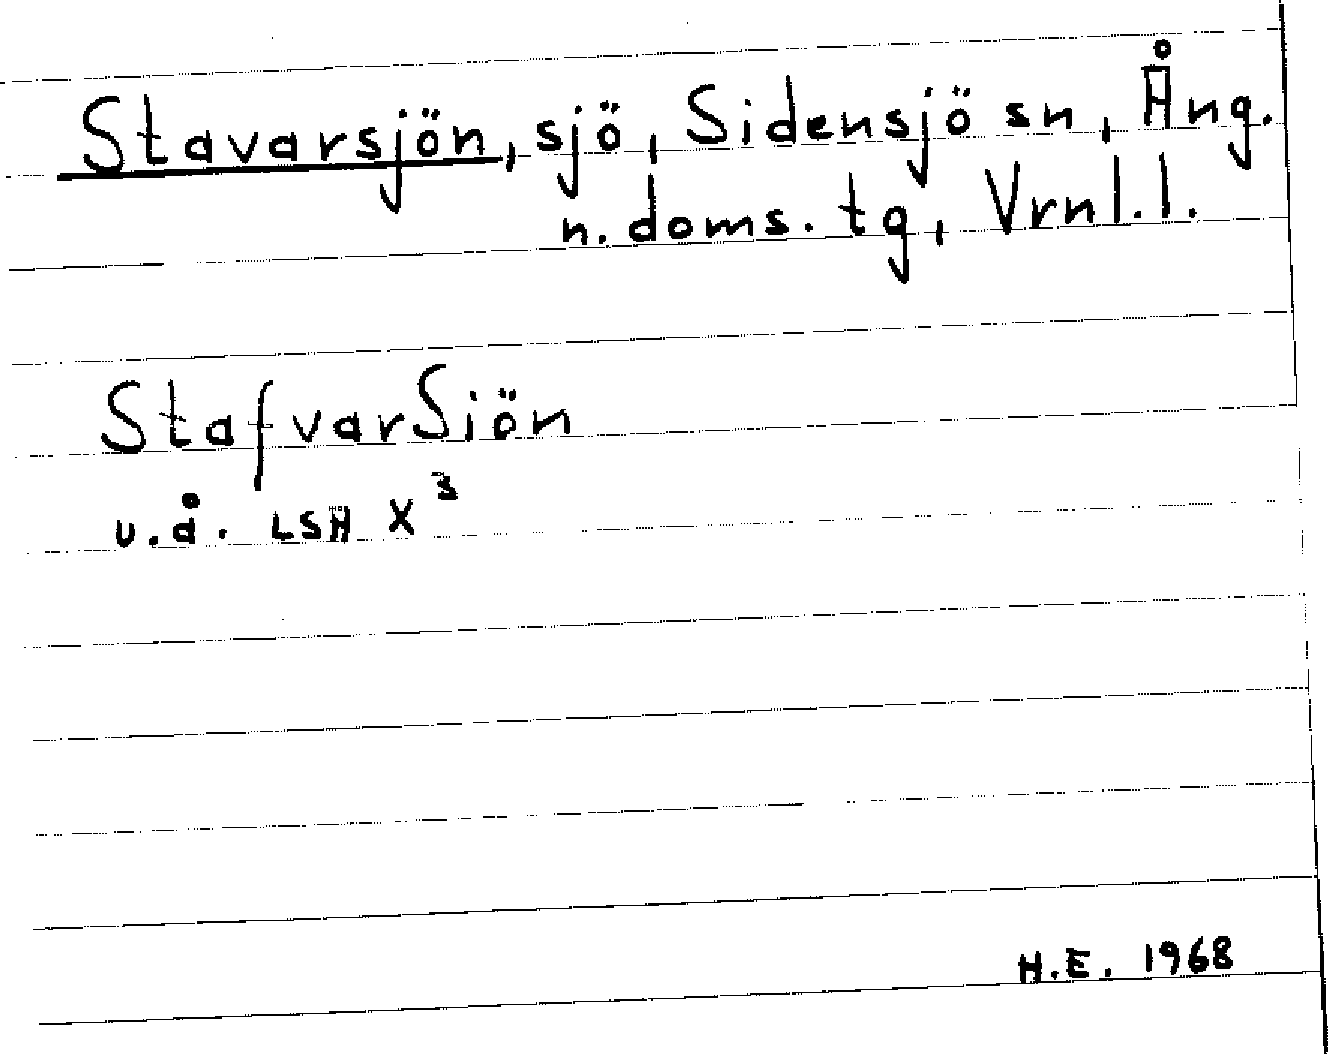 Stavarsjön, sjö, Sidensjö sn, Ång.
n. doms. tg, Vrnl. l.
StafvarSiön
u.å. LSH X³
H.E. 1968